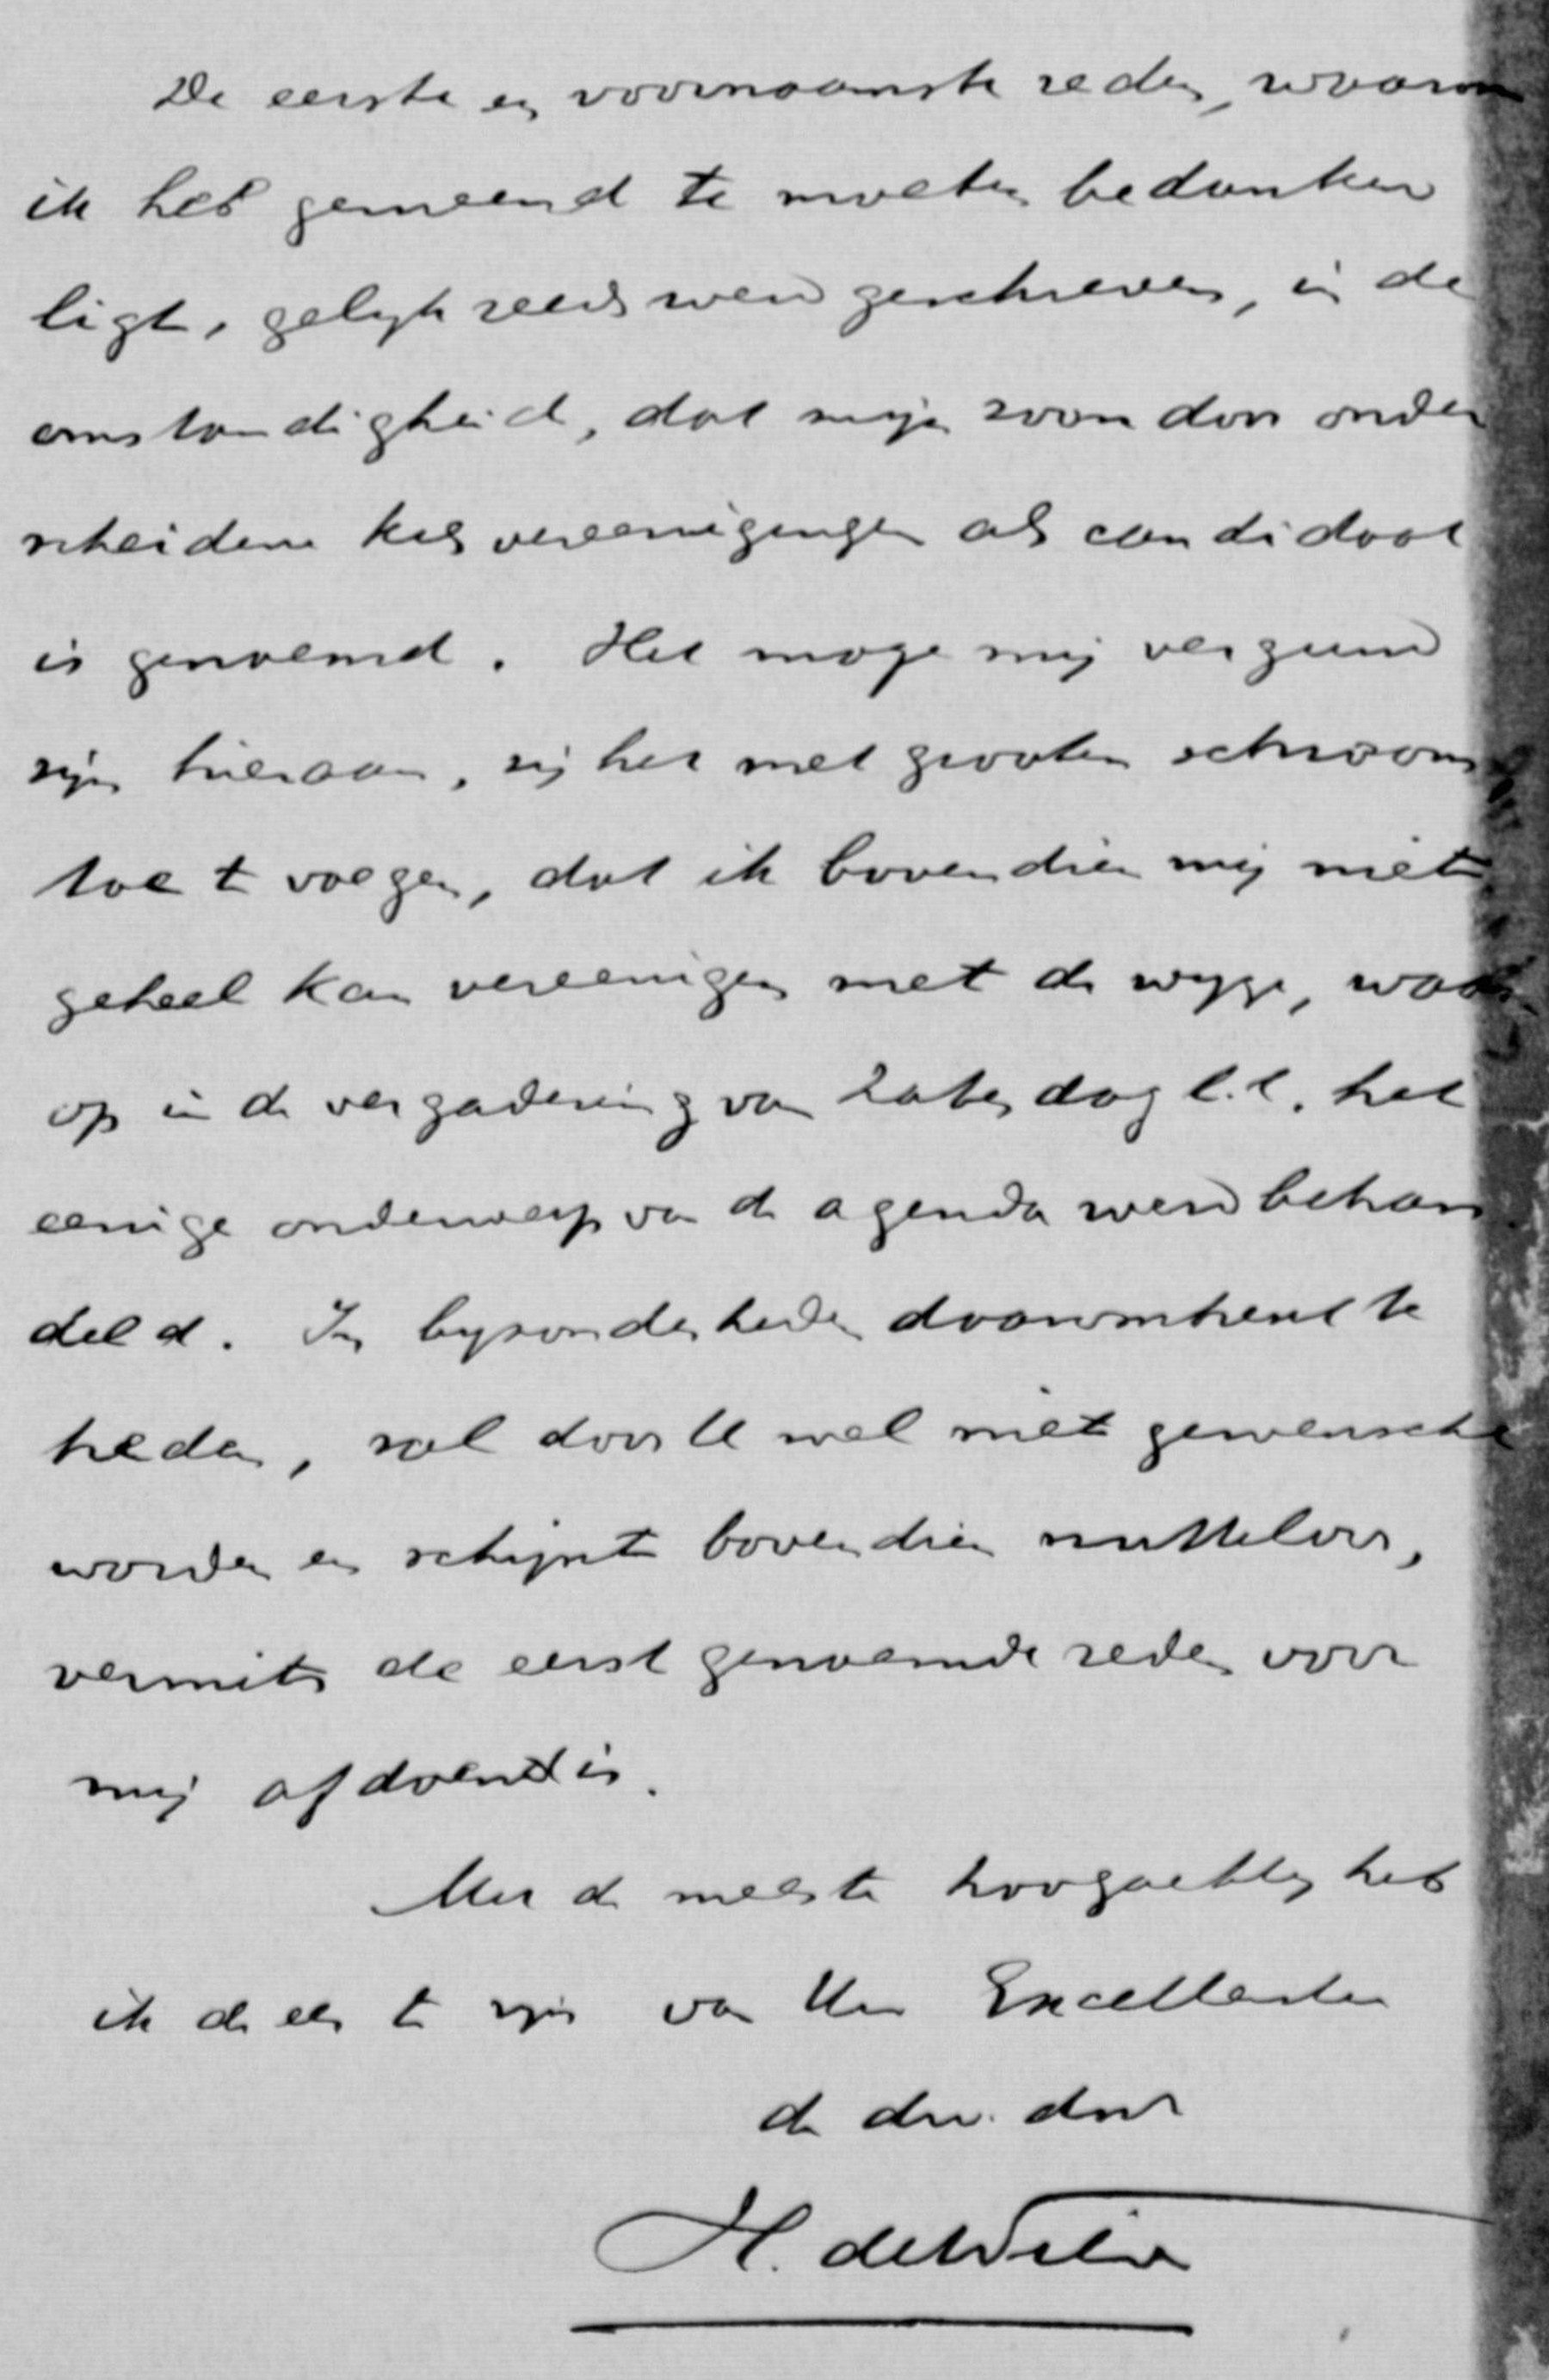 De eerste en voornaamste reden, waarom
ik heb gemeend te moeten bedanken
ligt, gelijk reeds werd geschreven, in de
omstandigheid, dat mijn zoon door onder
scheidene kiesvereenigingen als candidaat
is genoemd. Het moge mij vergund
zijn hieraan, zij het met grooten schroom
toe te voegen, dat ik bovendien mij niet
geheel kan vereenigen met de wijze, waar-
op in de vergadering van Zaterdag l.l. het
eenige onderwerp van de agenda werd behan-
deld. In bijzonderheden daaromtrent te
treden, zal door U wel niet gewenscht
worden en schijnt bovendien nutteloos,
vermits de eerst genoemde reden voor
mij afdoend is.
Met de meeste hoogachting heb
ik de eer te zijn van Uw Excellentie
de dw. dnr
H. de